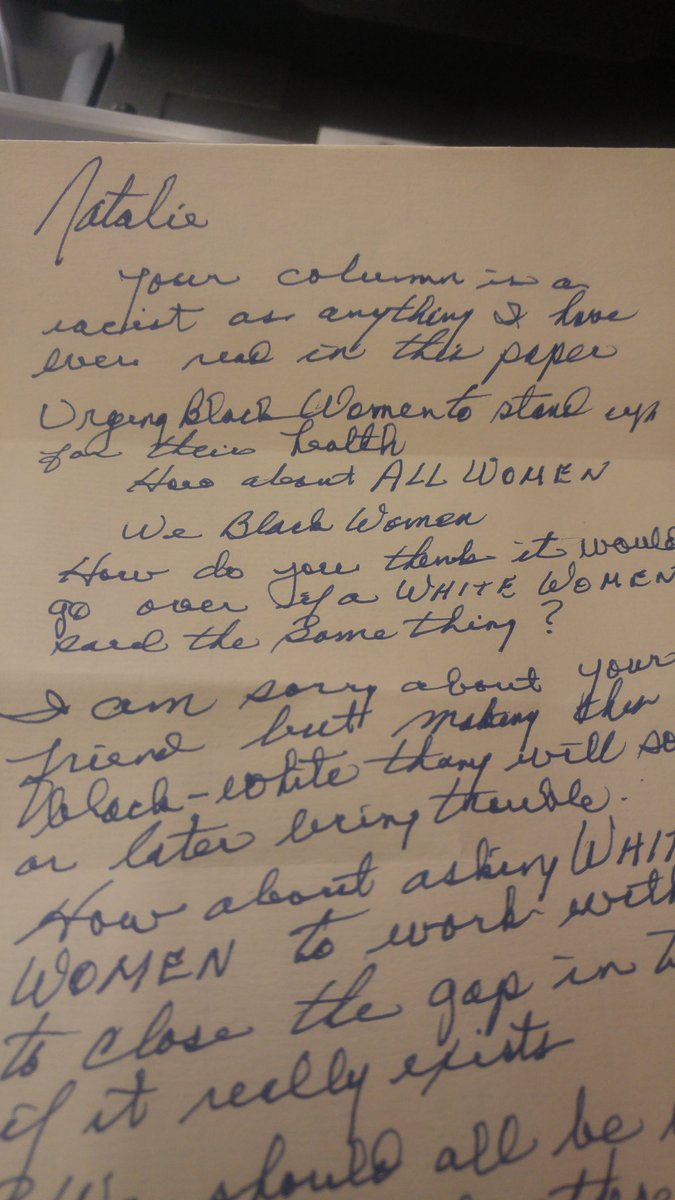 Natalie
Your column is a
racist as anything I have
ever read in this paper
Urging Black Women to stand up
for their health
How about ALL WOMEN
We Black Women
How do you think it would
go over if a WHITE WOMEN
said the same thing?
I am sorry about your
friend but making this
black-white thang will so
or later bring trouble.
How about asking WHIT
WOMEN to work with
to close the gap in t
if it really exists
should all be